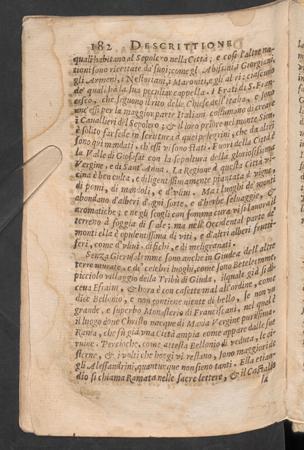 182 DESCRITTIONE
quali habitano al Sepolcro nella Città; e così l'altre na-
tioni sono ricettate da' suoi; come gli Abissini, i Giorgiani,
gli Armeni, i Nestoriani, i Maroniti, e gli altri; ciascuno
de' quali hà la sua peculiar cappella. I Frati di S. Fran-
cesco, che seguono il rito delle Chiese dell'Italia, e sono
essi per la maggior parte Italiani costumano
i Cavallieri del Sepolcro; & il loro priore nel monte Sion,
è solito far fede in scrittura à quei peregrini, che da altri
sono qui mandati, ch'essi vi sono stati. Fuori della Città è
la Valle di Giosafat con la sepoltura della gloriosissima
Vergine, e di Sant'Anna. La Regione à questa Città vi-
cina è ben culta, e diligentissimamente piantata d'vigne,
di pomi, di mandoli, e d'vliui. Ma i luoghi de' monti
abondano d'alberi d'ogni sorte, e d'herbe seluaggie, &
aromatiche; e negli scogli con somma cura vi si lauora il
terreno à foggia di scale; ma nell'Occidental parte de'
monti elle è copiosissima di viti, e d'altri alberi frutti-
feri, come d'vliui, di fichi, e di meligranati.
Senza Gierusalemme sono anche in Giudea dell'altre
terre murate, e de' celebri luoghi, come sono Betelemme,
picciolo villaggio della Tribù di Giuda, ilquale già si di-
ceua Efraim, & hora è con casette mal all'ordine, come
dice Bellonio, e non contiene niente di bello, se non un
grande, e superbo Monasterio di Franciscani, nel quale è
il luogo doue Christo nacque di Maria Vergine purissima.
Rama, che fù già una Città ampia come appare dalle sue
ruine. Percioche, come attesta Bellonio di veduta, le ci-
sterne, & i volti che hoggi vi restano, sono maggiori de
gli Alessandrini, quantunque non sieno tanti. Ella etian-
dio si chiama Ramata nelle sacre lettere, & il Castaldo
la